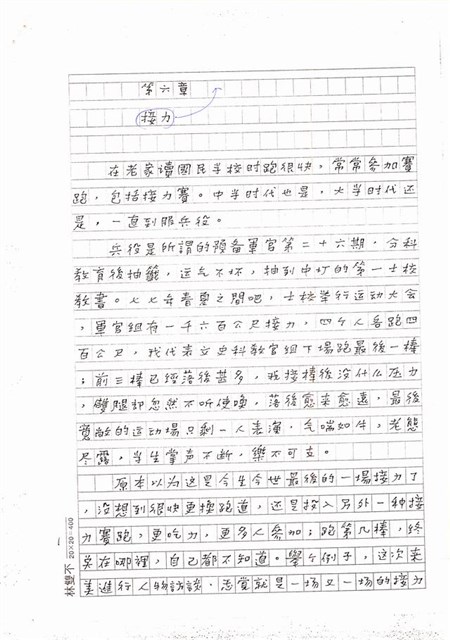 第六章
接力
在老家讀國民学校时跑很快，常常参加賽
跑，包括接力賽。中学时代也是，大学时代还
是，一直到服兵役。
兵役是所謂的預备軍官第二十六期，分科
教育後抽籤，运气不坏，抽到中坜的第一士校
教書。七七年春夏之間吧，士校举行运动大会
，軍官組有一千六百公尺接力，四个人各跑四
百公尺，我代表文史科教官組下場跑最後一棒
；前三棒已經落後甚多，我接棒後沒什么压力
，雙腿却忽然不听使喚，落後愈来愈遠，最後
寬敞的运动場只剩一人表演，气喘如牛，老態
尽露，学生掌声不断，樂不可支。
原本以为这是今生今世最後的一場接力了
，沒想到很快更換跑道，还是投入另外一种接
力賽跑，更吃力，更多人参加；跑第几棒，終
点在哪裡，自己都不知道。舉个例子，这次来
美進行人的訪談，感覚就是一場又一場的接力
林雙不 20×20=400